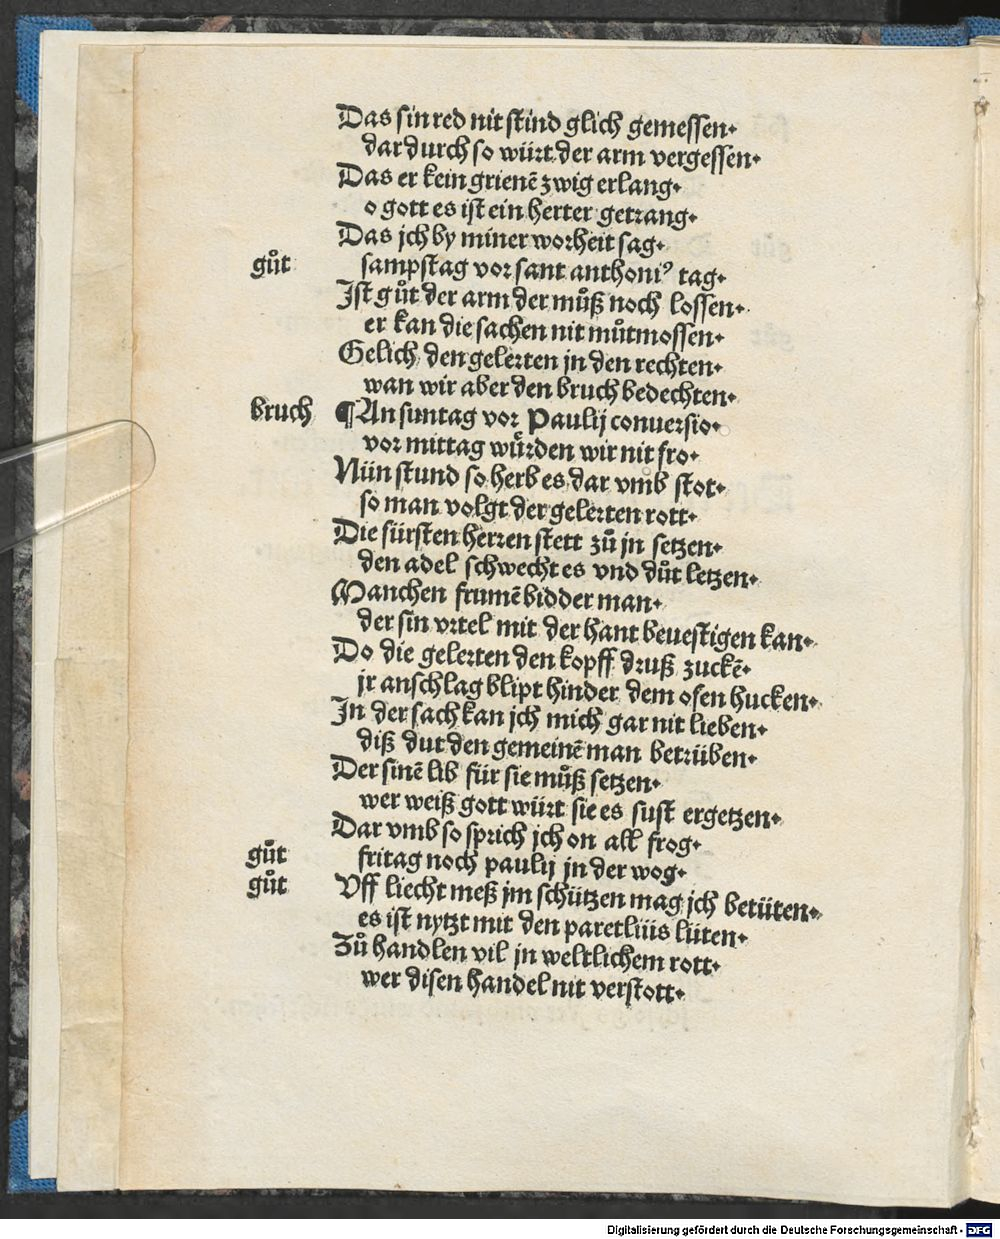 Das sin red nit stind glich gemessen.
dar durch so würt der arm vergessen.
Das er kein grienē zwig erlang.
o gott es ist ein herter getrang.
Das jch by miner worheit sag.
gůt sampstag vor sant anthoniꝰ tag.
Ist gůt der arm der můß noch lossen.
er kan die sachen nit můtmossen.
Gelich den gelerten jn den rechten.
wan wir aber den bruch bedechten.
bruch ¶ An suntag vor Paulij conuersio.
vor mittag wůrden wir nit fro.
Nün stund so herb es dar vmb stot.
so man volgt der gelerten rott.
Die fürsten herren stett zů jn setzen.
den adel schwecht es vnd důt letzen.
Manchen frumē bidder man.
der sin vrtel mit der hant beuestigen kan.
Do die gelerten den kopff druß zuckē.
jr anschlag blipt hinder dem ofen hucken.
In der sach kan jch mich gar nit lieben.
diß dut den gemeinē man betrüben.
Der sinē lib für sie můß setzen.
wer weiß gott würt sie es sust ergetzen.
Dar vmb so sprich jch on all frog.
gůt fritag noch paulij jn der wog.
gůt Vff liecht meß jm schützen mag jch betüten.
es ist nytzt mit den paretliiis lüten.
Zů handlen vil jn weltlichem rott.
wer disen handel nit verstott.
Digitalisierung gefördert durch die Deutsche Forschungsgemeinschaft - DFG